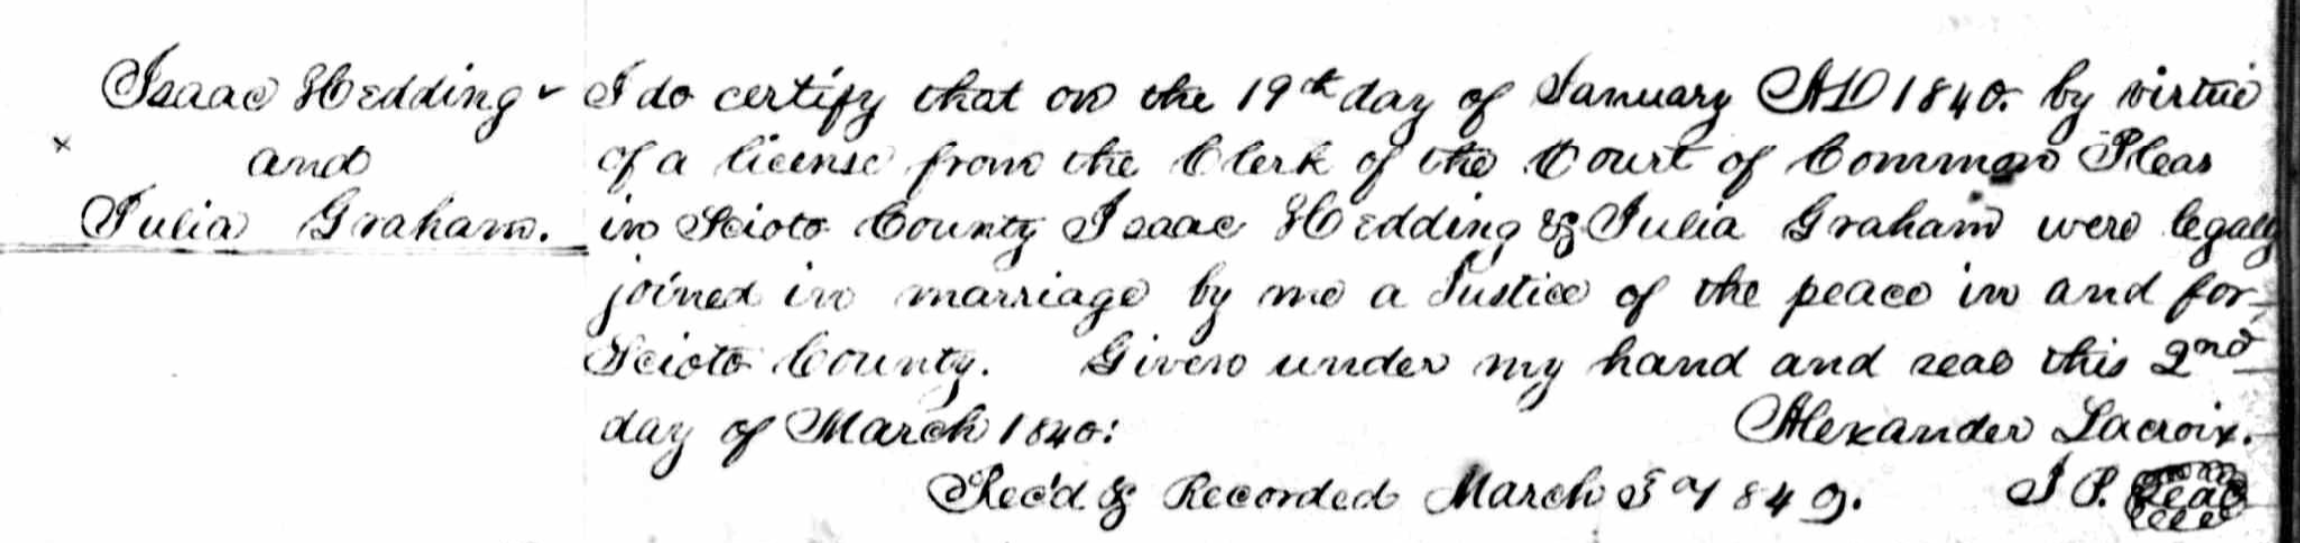 Isaac Hedding
and
Julia Graham.
I do certify that on the 19th day of January AD 1840. by virtue
of a license from the Clerk of the Court of Common Pleas
in Scioto County Isaac Hedding & Julia Graham were legally
joined in marriage by me a Justice of the peace in and for
Scioto County. Given under my hand and seal this 2nd
day of March 1840.
Alexander Lacroix.
Rec'd & Recorded March 1849. J P. Seal